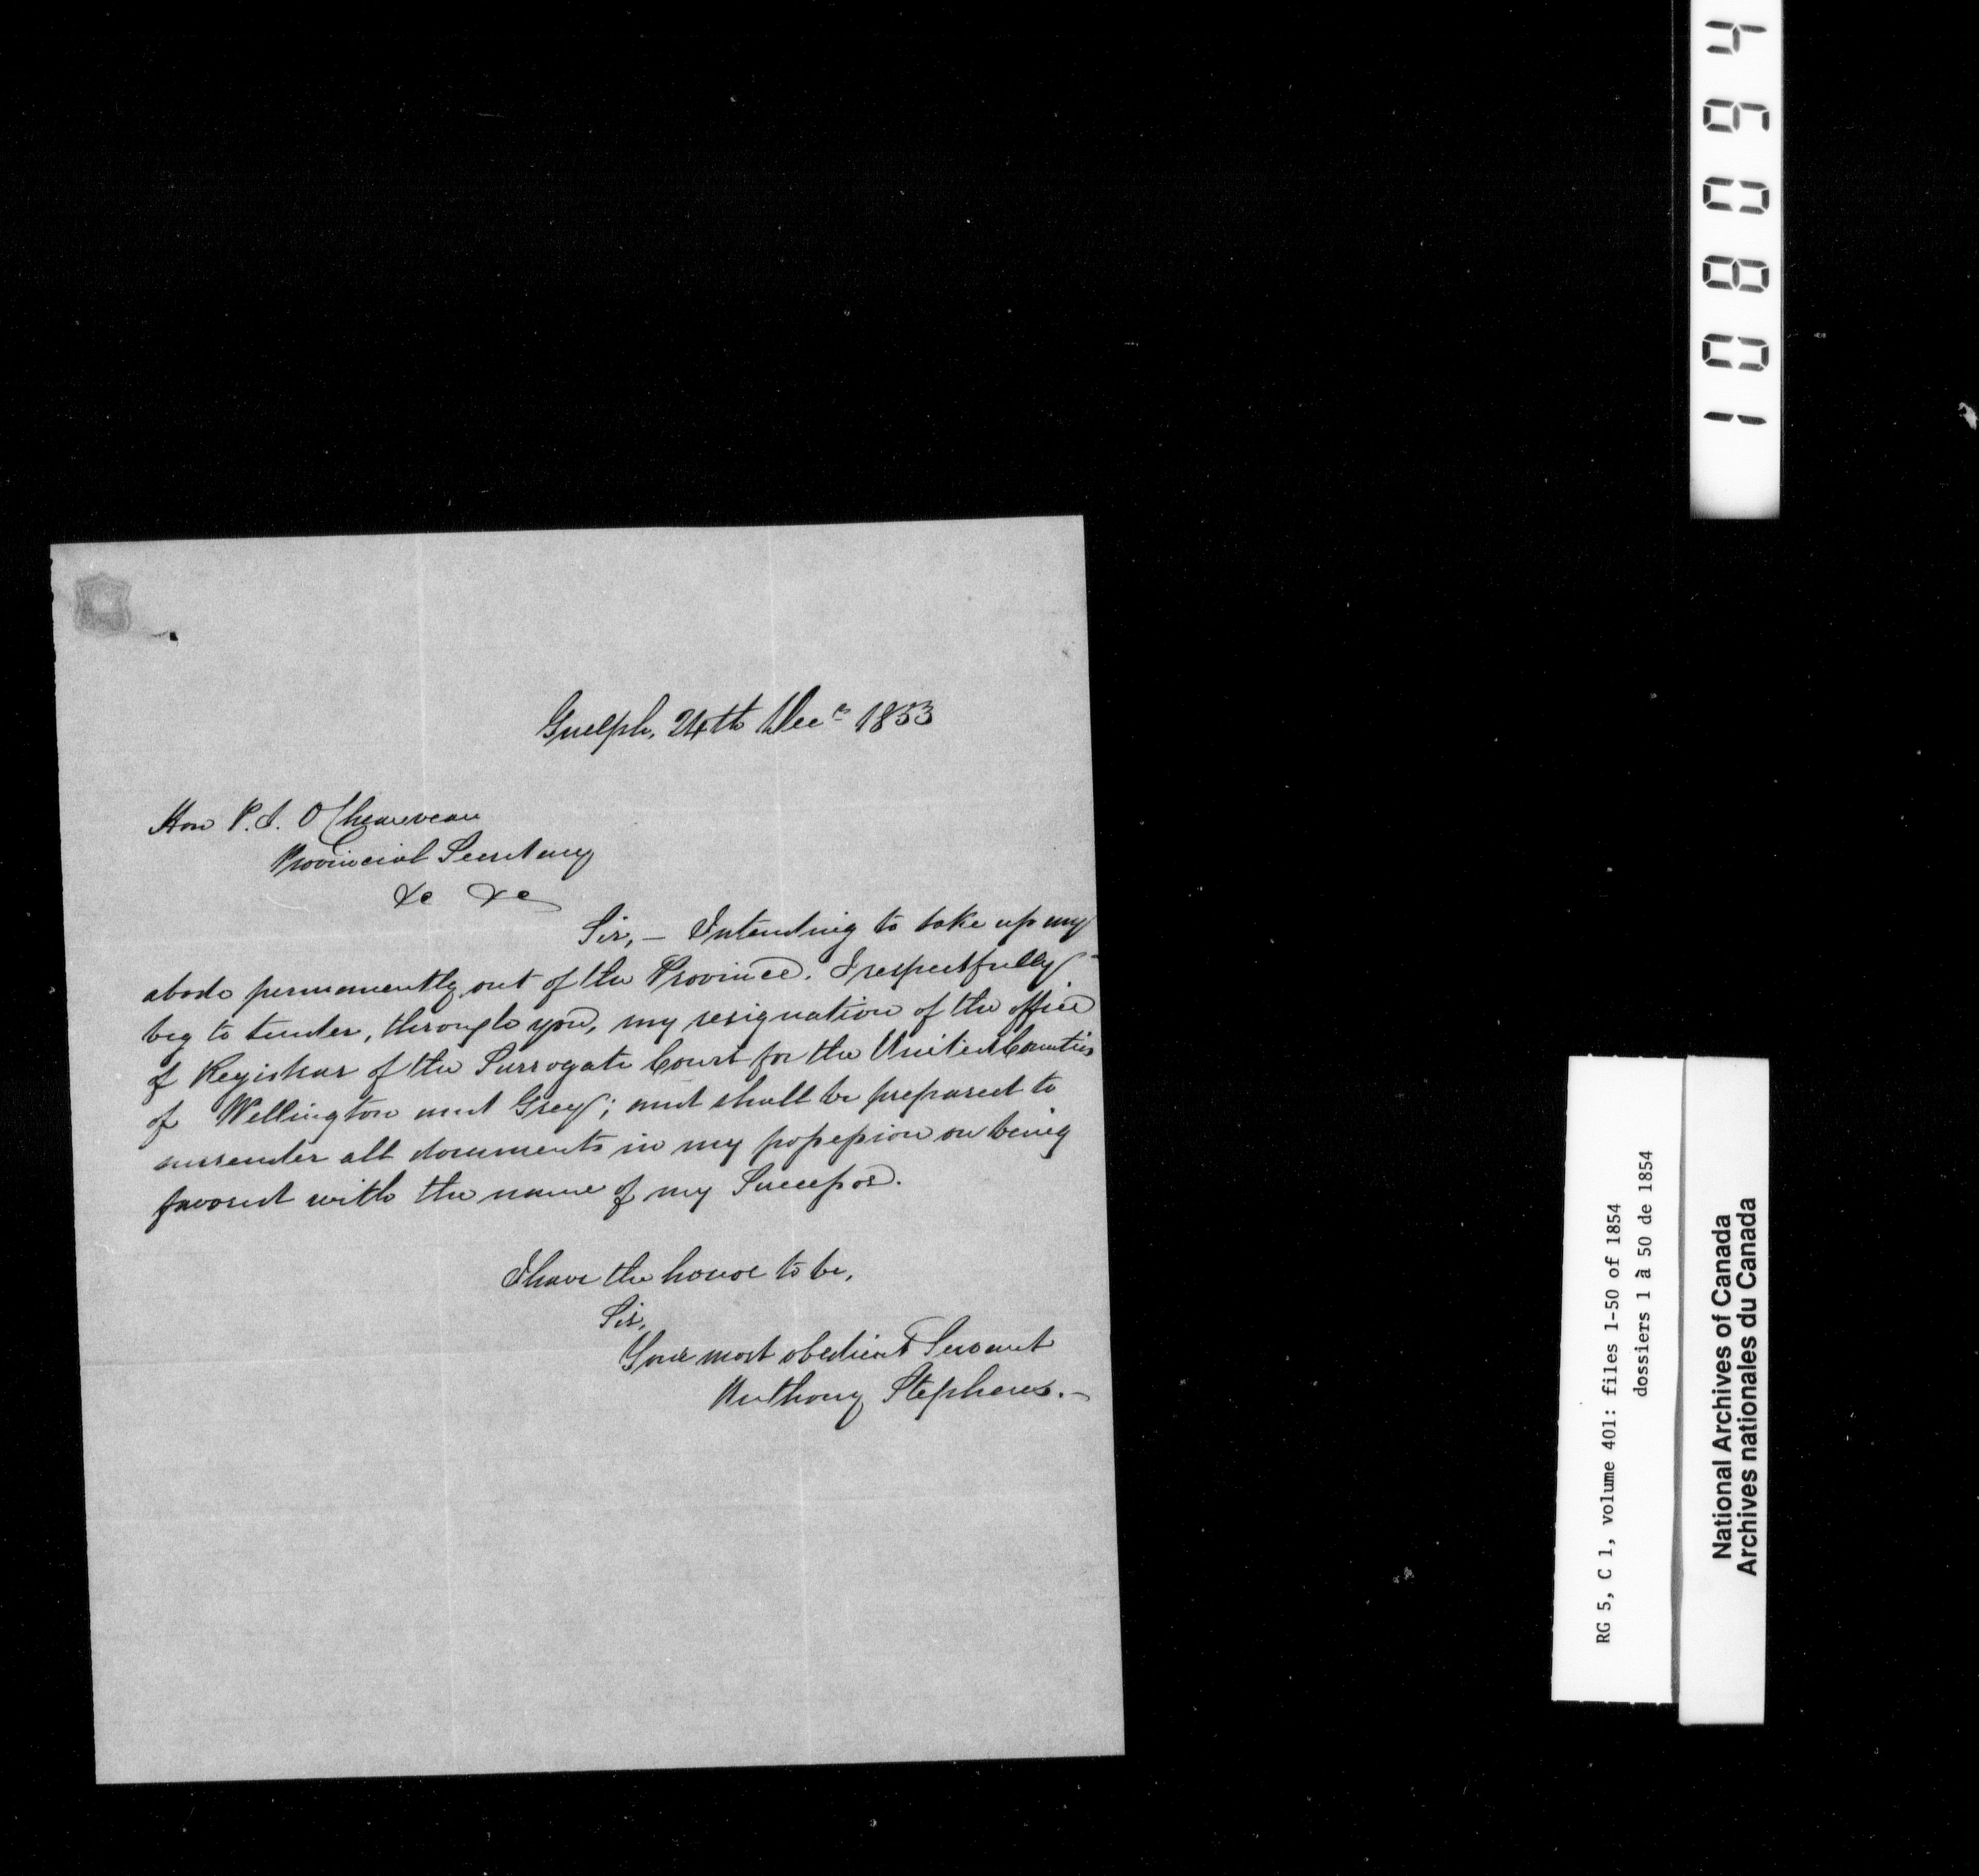 Guelph, 24th Decr 1853
Hon P. J. O Chauveau
Provincial Secretary
&c &c
Sir, — Intending to take up my
abode permanently out of the Province. I respectfully
beg to tender, through you, my resignation of the office
of Registrar of the Surrogate Court for the United Counties
of Wellington and Grey; and shall be prepared to
surrender all documents in my possession on being
favored with the name of my Successor.
I have the honor to be,
Sir,
Your most obedient Servant
Anthony Stephens. —
108094
RG 5, C 1, volume 401: files 1-50 of 1854
dossiers 1 à 50 de 1854
National Archives of Canada
Archives nationales du Canada